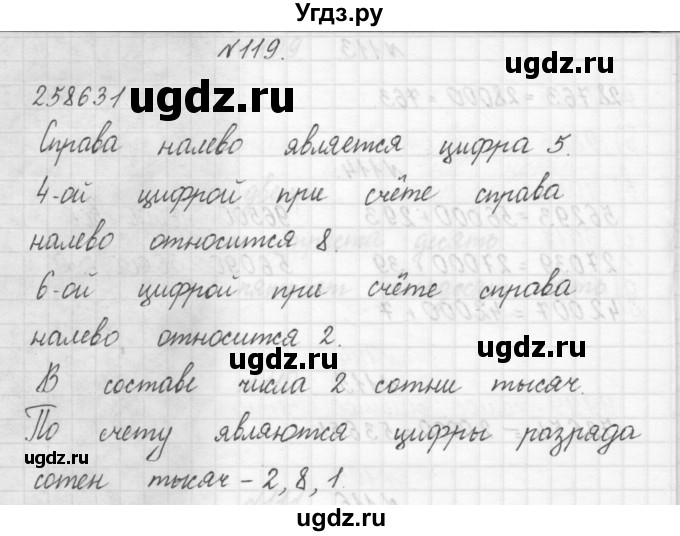 Угдз.ру
№119.
258631
ugdz.ru
ugdz.ru
Справа налево является цифра 5.
4-ой цифрой при счёте справа
ugdz.ru
налево относится 8.
6-ой цифрой при счёте справа
налево относится 2.
ugdz.ru
ugdz.ru
В составе числа 2 сотни тысяч.
По счету являются цифры разряда
ugdz.ru
сотен тысяч - 2, 8, 1.
ugdz.ru
ugdz.ru